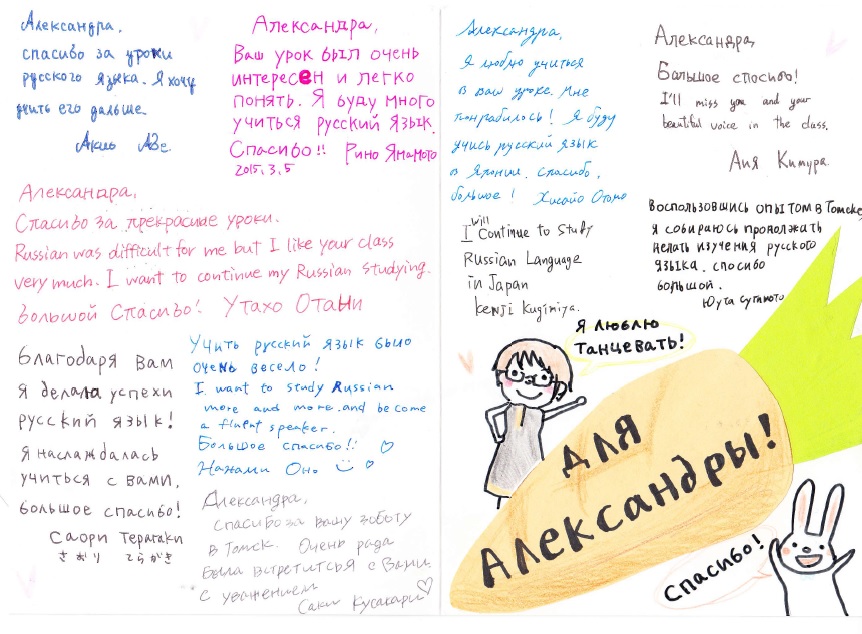 Александра,
спасибо за уроки
русского языка. Я хочу
учить его дальше.
Акиь Абе.
Александра,
Ваш урок был очень
интересен и легко
понять. Я буду много
учиться русский язык.
Спасибо!! Рино Ямамото
2015.3.5
Александра,
Спасибо за прекрасные уроки.
Russian was difficult for me but I like your class
very much. I want to continue my Russian studying.
большой Спасибо! Утахо Отани
Благодаря Вам
я делала успехи
русский язык!
Я наслаждалась
учиться с вами,
большое спасибо!
Саори Терагаки
さおり てらがき
Учить русский язык было
очень весело!
I want to study Russian
more and more. and become
a fluent speaker.
Большое спасибо!!
Нанами Оно
Александра,
Спасибо за вашу зоботу
в Томск. Очень рада
была встретиться с Вами.
С уважением
Саки Кусакари
Александра,
Я люблю учиться
в ваш уроке. Мне
понрабилось! Я буду
учись русский язык
в Японии. спасибо,
большое! Хисайо Отомо
I will Continue to Study
Russian Language
in Japan
kenji Kugimiya.
Александра,
Балышое спосибо!
I'll miss you and your
beautiful voice in the class.
Аия Кимура.
Воспользовшись опытом в Томске,
я собираюсь проволжать
желать изучения русского
языка. спосибо
большой.
Юута Сугимото
Я люблю
танчевать!
для
Александры!
Спасибо!